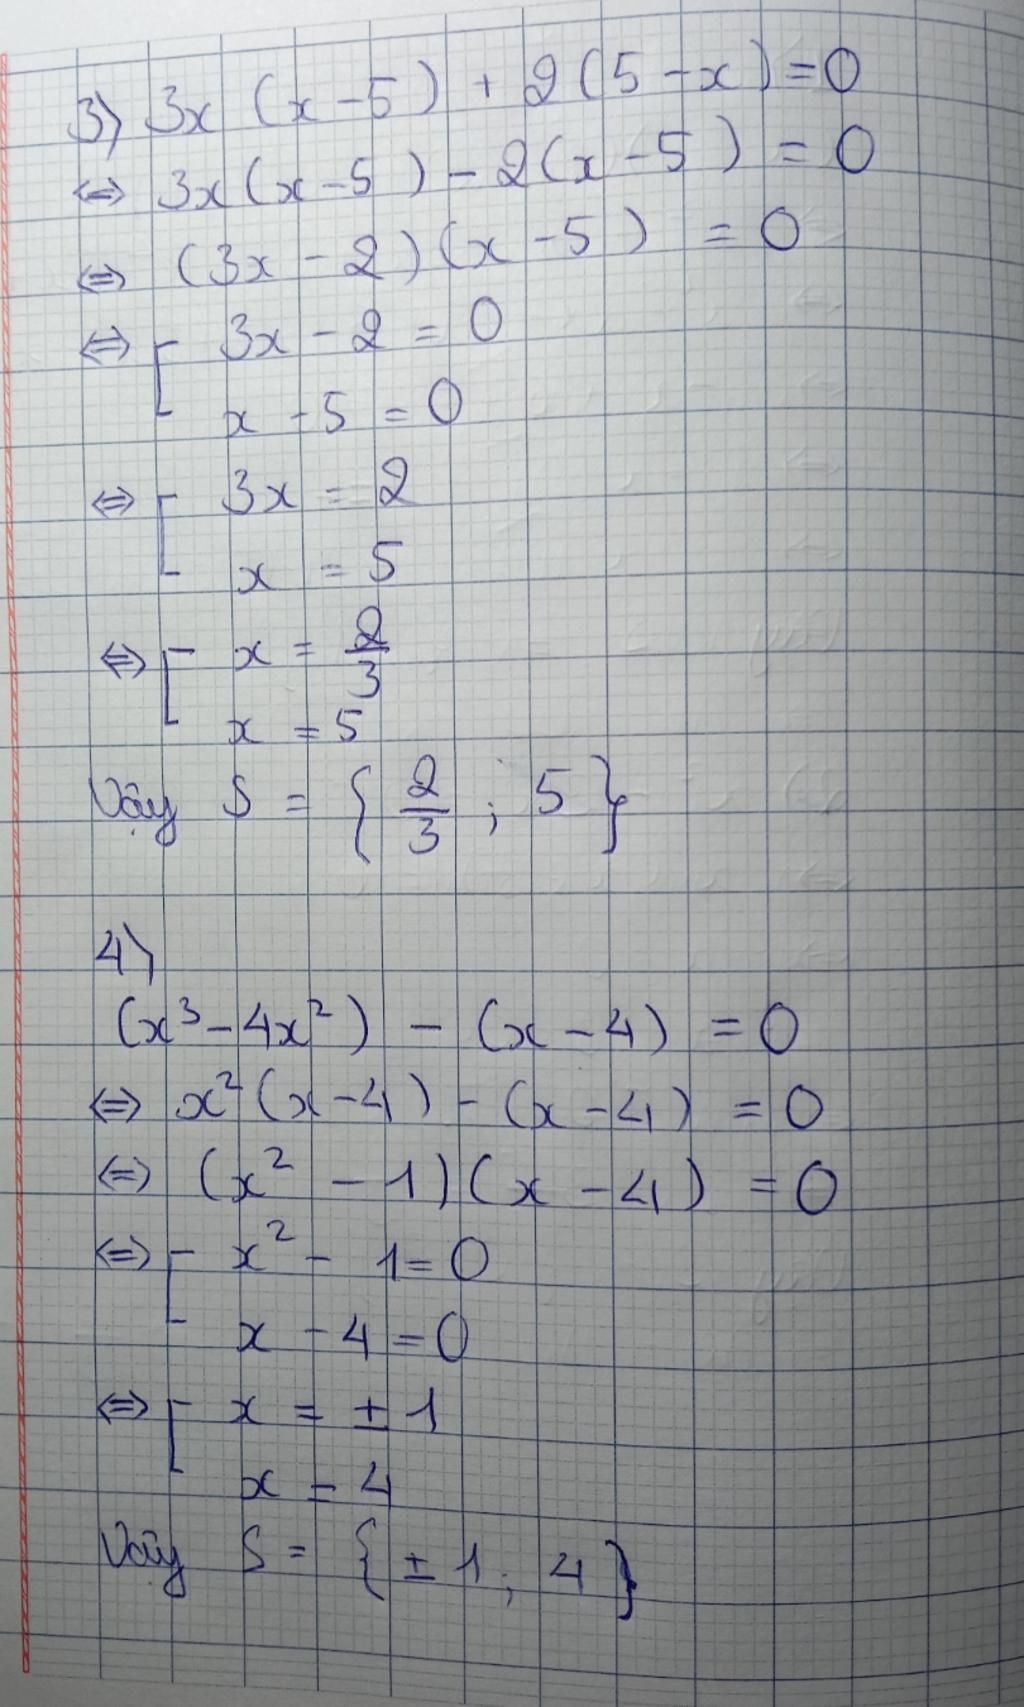 3) 3x (x - 5) + 2 (5 - x) = 0
⇔ 3x (x - 5) - 2 (x - 5) = 0
⇔ (3x - 2) (x - 5) = 0
⇔ [ 3x - 2 = 0
x - 5 = 0
⇔ [ 3x = 2
x = 5
⇔ [ x = 2/3
x = 5
Vậy S = { 2/3 ; 5 }
4)
(x³ - 4x²) - (x - 4) = 0
⇔ x² (x - 4) - (x - 4) = 0
⇔ (x² - 1) (x - 4) = 0
⇔ [ x² - 1 = 0
x - 4 = 0
⇔ [ x = ± 1
x = 4
Vậy S = { ± 1 ; 4 }